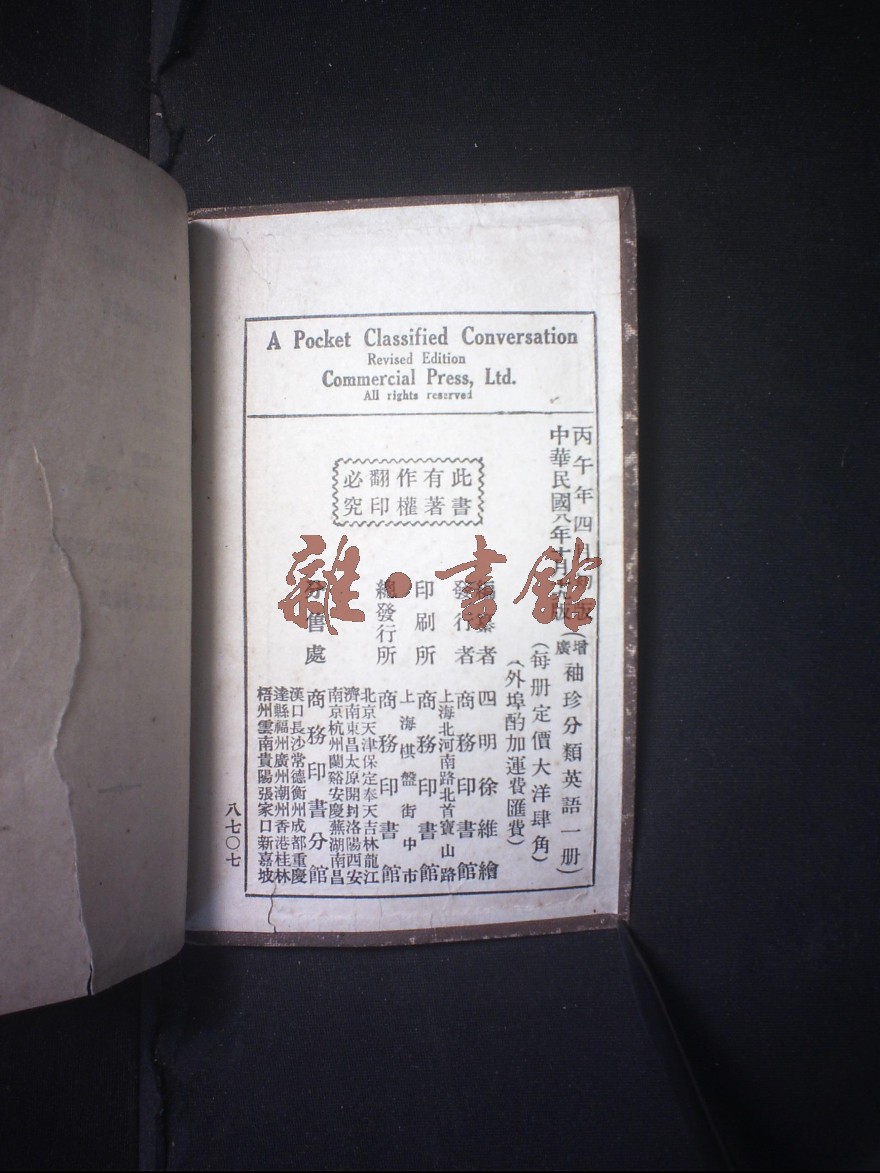 A Pocket Classified Conversation
Revised Edition
Commercial Press, Ltd.
All rights reserved
丙午年四月初版
中華民國八年十月
版
(增廣袖珍分類英語一册)
(每册定價大洋肆角)
(外埠酌加運費匯費)
此書
有著
作權
翻印
必究
編纂者 四明徐維繪
發行者 商務印書館
印刷所 上海北河南路北首寶山路 商務印書館
總發行所 上海棋盤街中市 商務印書館
分售處 商務印書分館
北京天津保定奉天吉林龍江
濟南東昌太原開封洛陽西安
南京杭州蘭谿安慶蕪湖南昌
漢口長沙常德衡州成都重慶
達縣福州廣州潮州香港桂林
梧州雲南貴陽張家口新嘉坡
八七〇七
雜·書館